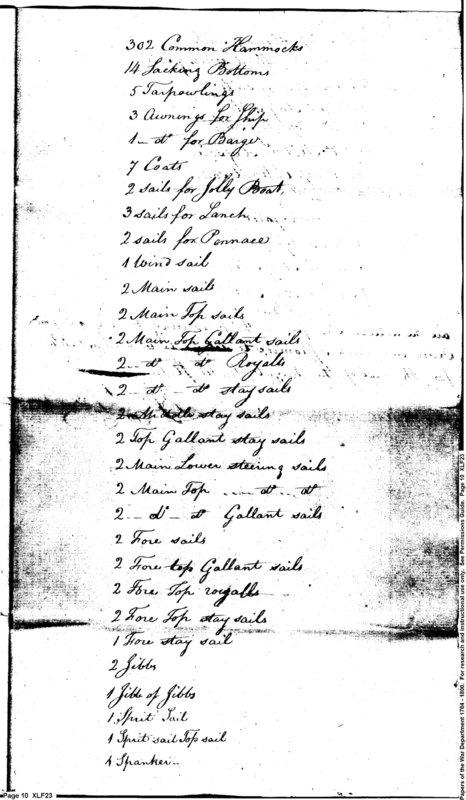 302 Common Hammocks
14 Sacking Bottoms
5 Tarpowlings
3 Awnings for Ship
1 - do for Barge
7 Coats
2 sails for Jolly Boat
3 sails for Lanch
2 sails for Pennace
1 Wind sail
2 Main sails
2 Main Top sails
2 Main Top Gallant sails
2 - do - do Royalls
2 - do - do stay sails
2 Middle stay sails
2 Top Gallant stay sails
2 Main Lower steering sails
2 Main Top - do - do
2 - do - do Gallant sails
2 Fore sails
2 Fore top Gallant sails
2 Fore Top royalls
2 Fore Top stay sails
1 Fore stay sail
2 Jibbs
1 Jibb of Jibbs
1 Sprit Sail
1 Sprit sail Top sail
1 Spanker
Page 10 XLF23
Papers of the War Department 1784 - 1800. For research and instructional use only. See Permissions Guide. Page 10 XLF23